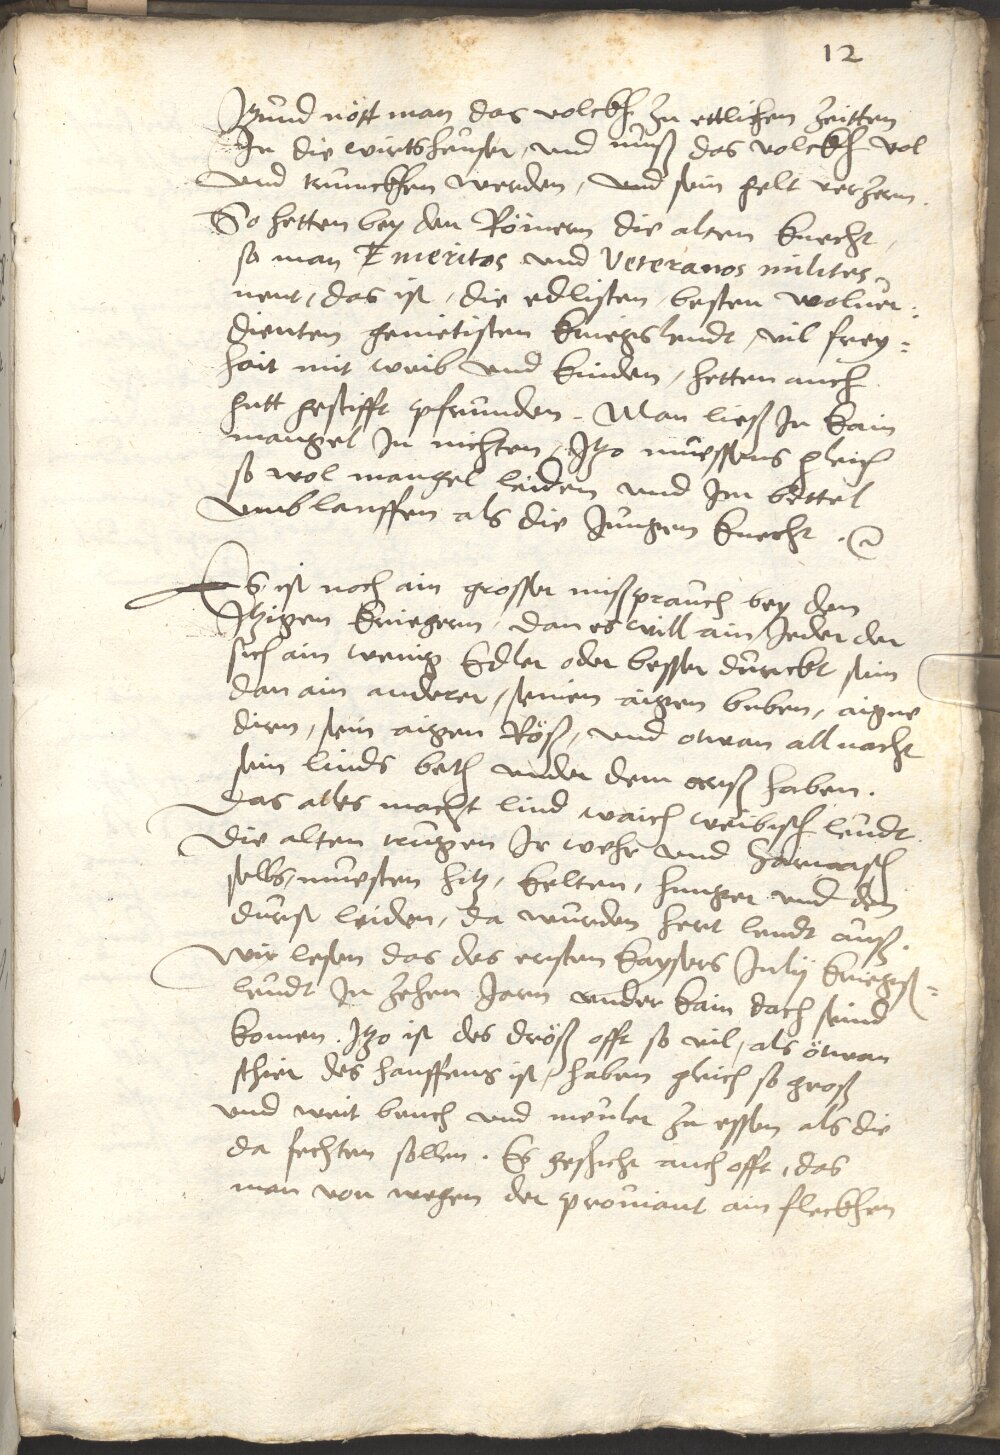 12
Itzund nött man das volckh zu ettlichen zeitten
In die wirtsheuser, und muß das volckh vol
und trunckhen werden, und sein gelt verzern.
So hetten bey den Römern die alten knecht,
so man Emeritos und Veteranos milites
nent, das ist, die edlisten, besten wolver-
dienten genietisten kriegsleudt, vil frey-
hait mit weib und kinden, hetten auch
gutt gestifft pfrunden. Man ließ In kain
mangel In nichten, Itzo muessens gleich
so wol mangel leiden und Im bettel
umblauffen als die Jungen knecht.
Es ist noch ain grosser mißprauch bey den
Itzigen kriegern, dan es will ain Jeder der
sich ain wenig Edler oder besser dunckt sein
dan ain anderer, seinen aigen buben, aigne
diren, sein aigen Röß, und etwan all nacht
sein linds beth under dem haben.
Das alles macht lind waich weibisch leudt.
Die alten trugen Ir wehr und harnasch
selbs, muesten hitz, kelten, hunger und den
durst leiden, da wurden hert leudt auß.
Wir lesen das des ersten kaysers Julij kriegß-
leudt In zehen Jarn under kain dach seind
komen. Itzo ist des dröß offt so vil, als ötwan
schier des hauffens ist, haben gleich so groß
und weit beuch und meuler zu essen als die
da fechten sollen. Es geschicht auch offt, das
man von wegen der proviant ain fleckhen